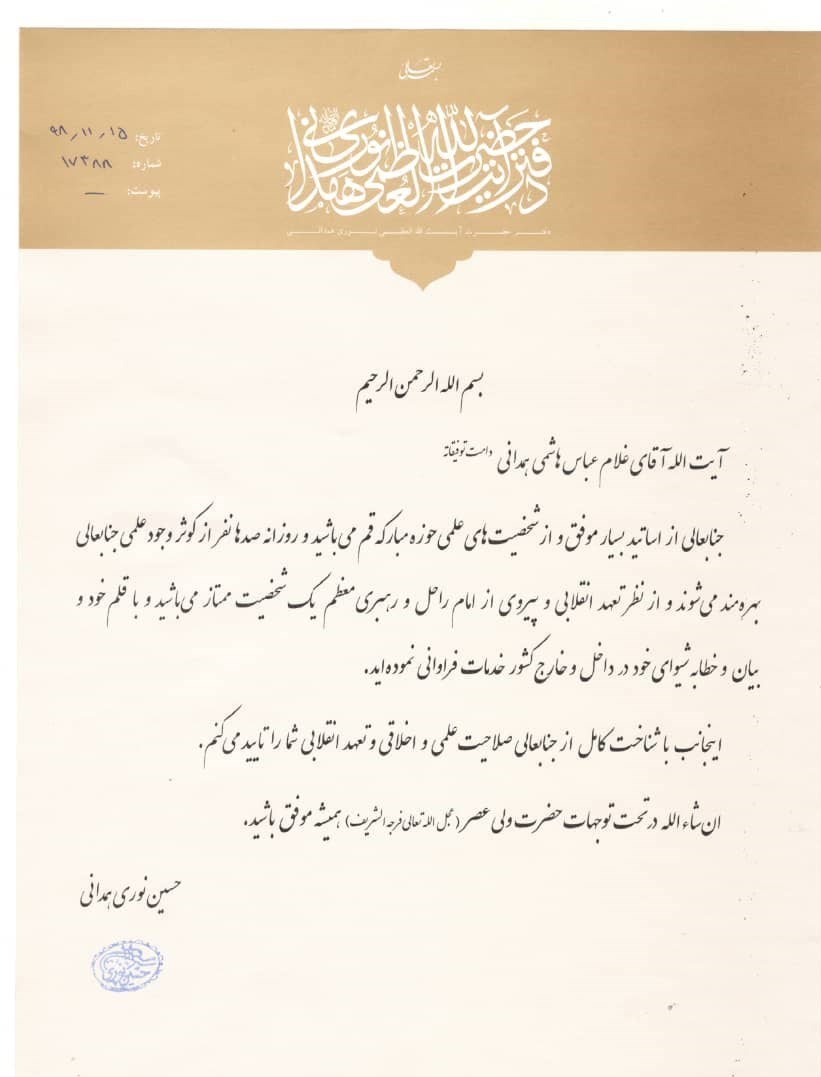 بسمه تعالی
دفتر حضرت آیت الله العظمی نوری همدانی
دفتر حضرت آیت الله العظمی نوری همدانی
تاریخ: ۹۸/۱۱/۱۵
شماره: ۱۷۳۸۸
پیوست: —
بسم الله الرحمن الرحیم
آیت الله آقای غلام عباس هاشمی همدانی دامت توفیقاته
جنابعالی از اساتید بسیار موفق و از شخصیت های علمی حوزه مبارکه قم می باشید و روزانه صدها نفر از کوثر وجود علمی جنابعالی
بهره مند می شوند و از نظر تعهد انقلابی و پیروی از امام راحل و رهبری معظم یک شخصیت ممتاز می باشید و با قلم خود و
بیان و خطابه شیوای خود در داخل و خارج کشور خدمات فراوانی نموده اید.
اینجانب با شناخت کامل از جنابعالی صلاحیت علمی و اخلاقی و تعهد انقلابی شما را تایید می کنم.
ان شاء الله در تحت توجهات حضرت ولی عصر (عجل الله تعالی فرجه الشریف) همیشه موفق باشید.
حسین نوری همدانی
حسین نوری